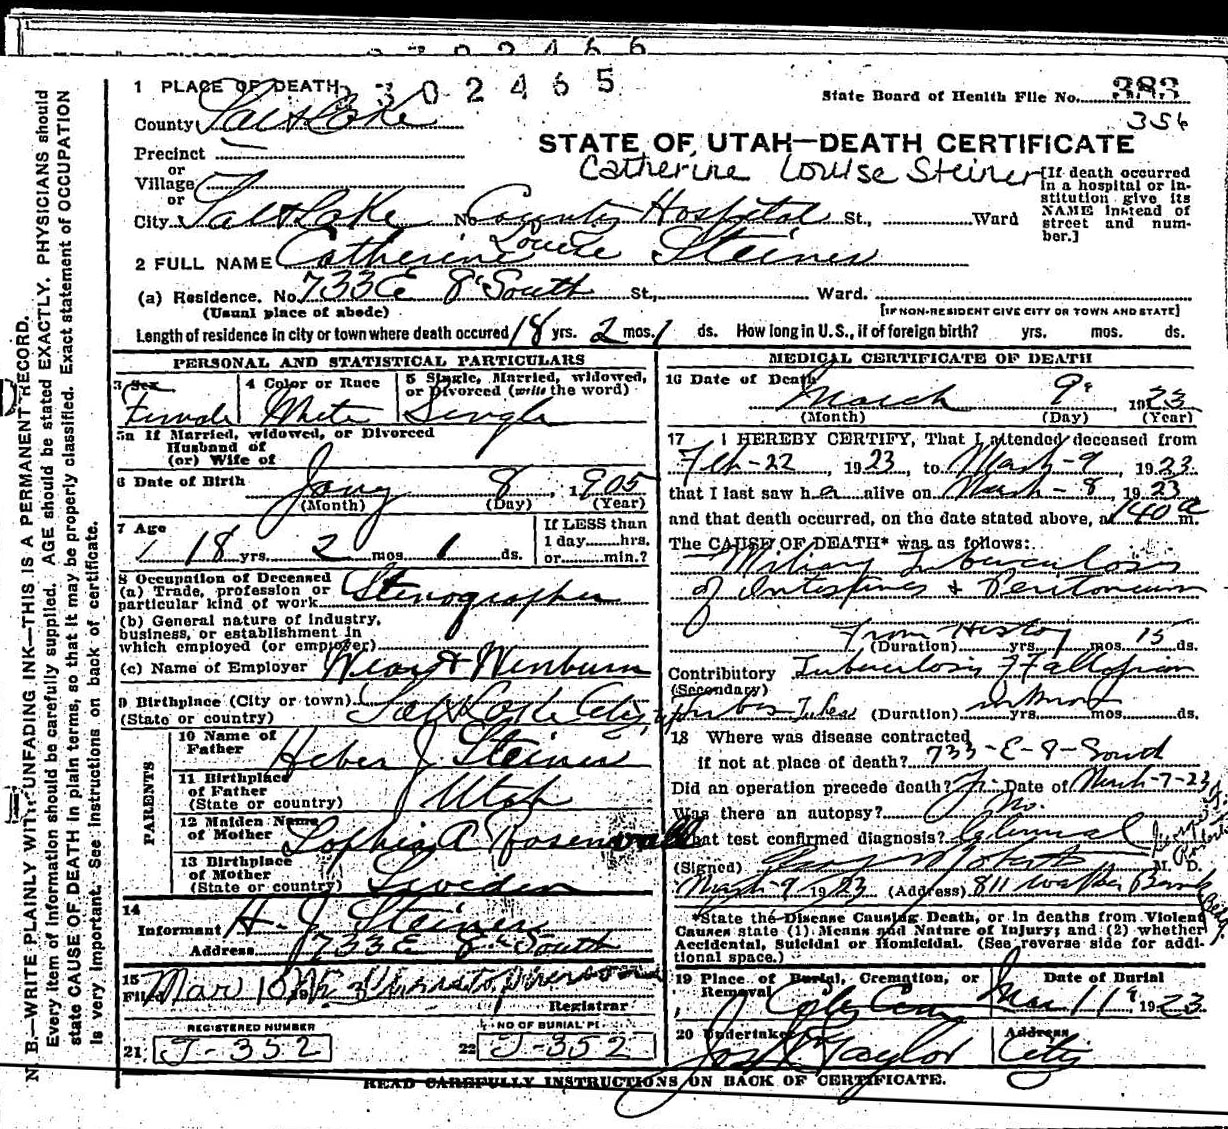 302466
2302465
1 PLACE OF DEATH
State Board of Health File No. 383
356
County Salt Lake
STATE OF UTAH—DEATH CERTIFICATE
Precinct
Catherine Louise Steiner
or
Village
or
City Salt Lake No. County Hospital St., Ward
[If death occurred in a hospital or institution give its NAME instead of street and number.]
Louise
2 FULL NAME Catherine Steiner
(a) Residence. No. 733 E 8th South St., Ward.
(Usual place of abode)
[IF NON-RESIDENT GIVE CITY OR TOWN AND STATE]
Length of residence in city or town where death occured 18 yrs. 2 mos. 1 ds. How long in U.S., if of foreign birth? yrs. mos. ds.
PERSONAL AND STATISTICAL PARTICULARS
3 Sex
Female
4 Color or Race
White
5 Single, Married, widowed, or Divorced (write the word)
Single
5a If Married, widowed, or Divorced
Husband of
(or) Wife of
6 Date of Birth Jany 8, 1905
(Month) (Day) (Year)
7 Age
18 yrs. 2 mos. 1 ds.
If LESS than
1 day hrs.
or min.?
8 Occupation of Deceased
(a) Trade, profession or
particular kind of work Stenographer
(b) General nature of industry,
business, or establishment in
which employed (or employer)
(c) Name of Employer
9 Birthplace (City or town) Salt Lake City
(State or country)
PARENTS
10 Name of
Father Heber J Steiner
11 Birthplace
of Father
(State or country) Utah
12 Maiden Name
of Mother Sophia A Rosenwall
13 Birthplace
of Mother
(State or country) Sweden
14
Informant H. J. Steiner
Address 733 E 8th South
15
Filed Mar 10
Registrar
REGISTERED NUMBER
21 J-352
NO OF BURIAL PE
22 J-352
MEDICAL CERTIFICATE OF DEATH
16 Date of Death
March 9, 1923
(Month) (Day) (Year)
17 I HEREBY CERTIFY, That I attended deceased from
Feb-22, 1923, to March-9, 1923
that I last saw her alive on March-8, 1923
and that death occurred, on the date stated above, at 140 a m.
The CAUSE OF DEATH* was as follows:
Miliary Tuberculosis
of Intestines & Peritoneum
From History
(Duration) yrs. mos. 15 ds.
Contributory Tuberculosis of Fallopian
(Secondary)
Tubes (Duration) yrs. mos. ds.
18 Where was disease contracted
if not at place of death? 733-E-8-South
Did an operation precede death? Date of March-7-23
Was there an autopsy? No.
What test confirmed diagnosis? Clinical
(Signed) M. D.
March-9 1923 (Address) 811 Walker Bank Bldg
*State the Disease Causing Death, or in deaths from Violent
Causes state (1) Means and Nature of Injury; and (2) whether
Accidental, Suicidal or Homicidal. (See reverse side for additional space.)
19 Place of Burial, Cremation, or
Removal
City Cem
Date of Burial
Mar 11, 1923
20 Undertaker
Jos Taylor
Address
City
READ CAREFULLY INSTRUCTIONS ON BACK OF CERTIFICATE.
N. B.—WRITE PLAINLY WITH UNFADING INK—THIS IS A PERMANENT RECORD.
Every item of information should be carefully supplied. AGE should be stated EXACTLY. PHYSICIANS should
state CAUSE OF DEATH in plain terms, so that it may be properly classified. Exact statement of OCCUPATION
is very important. See instructions on back of certificate.